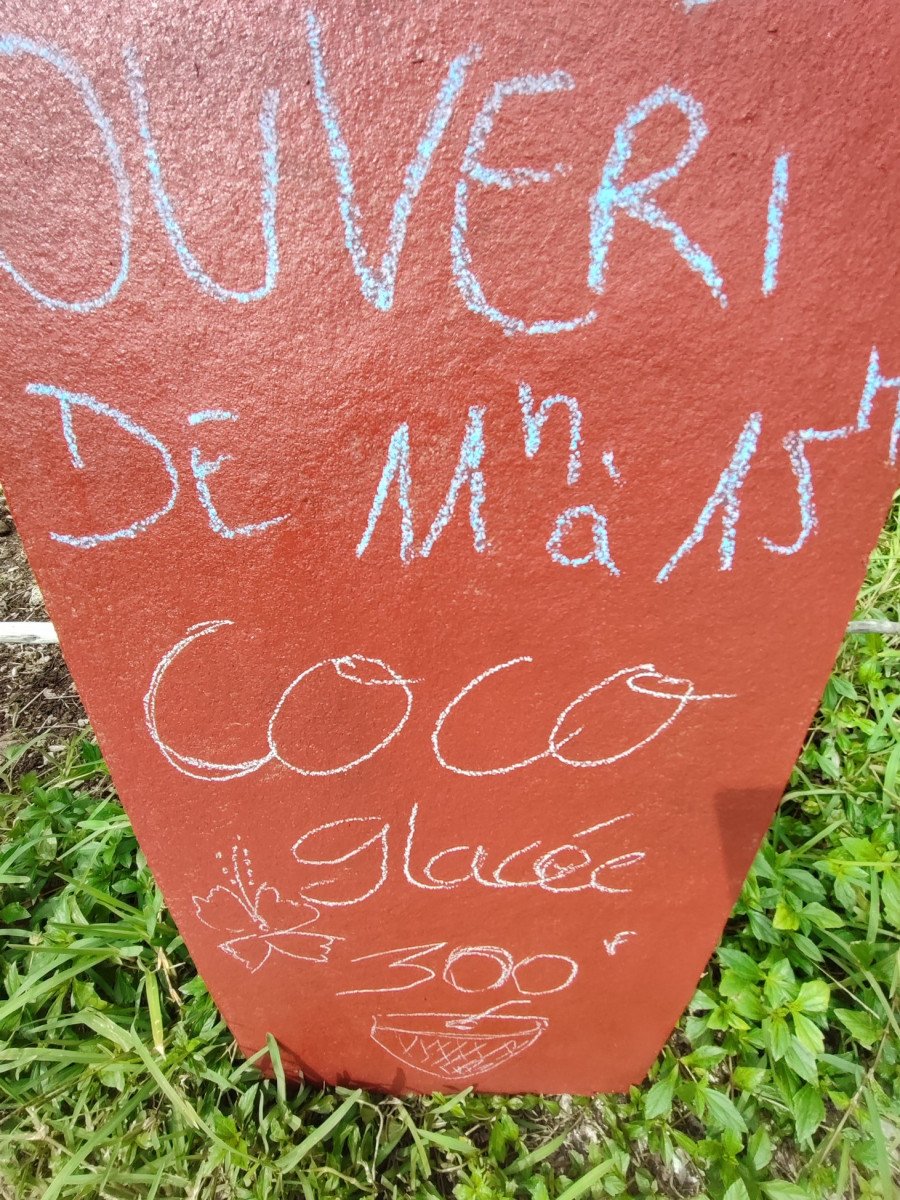 OUVERT
DE 11h à 15h
COCO
glacée
300 F